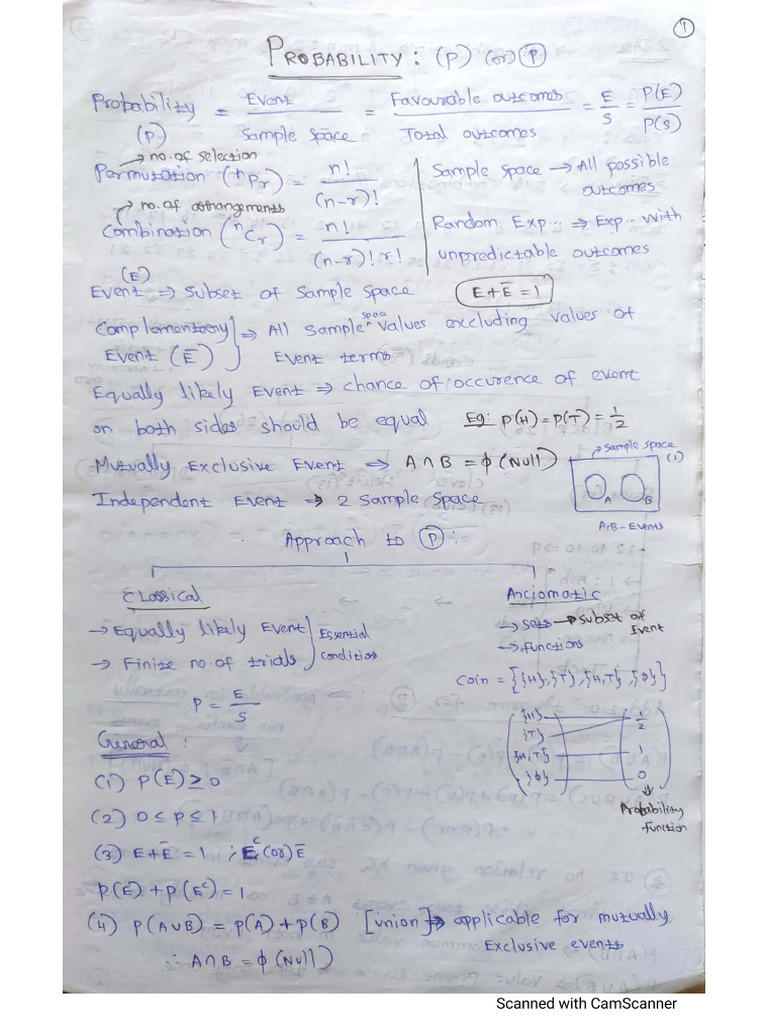 1
PROBABILITY: (P) (or) P
Probability = Event / Sample space = Favourable outcomes / Total outcomes = E / S = P(E) / P(S)
(P)
→ no. of selection
Permutation (ⁿPr) = n! / (n-r)!
Sample space → All possible outcomes
→ no. of arrangements
Combination (ⁿCr) = n! / (n-r)! r!
Random Exp.. ⇒ Exp.. with
unpredictable outcomes
(E)
Event ⇒ Subset of Sample Space
E+Ē = 1
Complementary
Event (Ē)
⇒ All sample space values excluding values of
Event terms
Equally likely Event ⇒ chance of occurence of event
on both sides should be equal Eg: P(H) = P(T) = 1/2
Mutually Exclusive Event ⇒ A ∩ B = ϕ (Null)
→ sample space (1)
A B
A,B - Events
Independent Event → 2 Sample Space
Approach to P :-
Classical
→ Equally likely Event
→ Finite no. of trials
Essential
Condition
P = E / S
Axciomatic
→ sets → subset of
Event
→ functions
Coin = {{H}, {T}, {H,T}, {ϕ}}
{H} 1/2
{T}
{H,T} 1
{ϕ} 0
Probability
function
General :
(1) P(E) ≥ 0
(2) 0 ≤ P ≤ 1
(3) E+Ē = 1 ; Eᶜ (or) Ē
P(E) + P(Eᶜ) = 1
(4) P(A∪B) = P(A) + P(B) [union] → applicable for mutually
Exclusive events
∴ A∩B = ϕ (Null)
Scanned with CamScanner